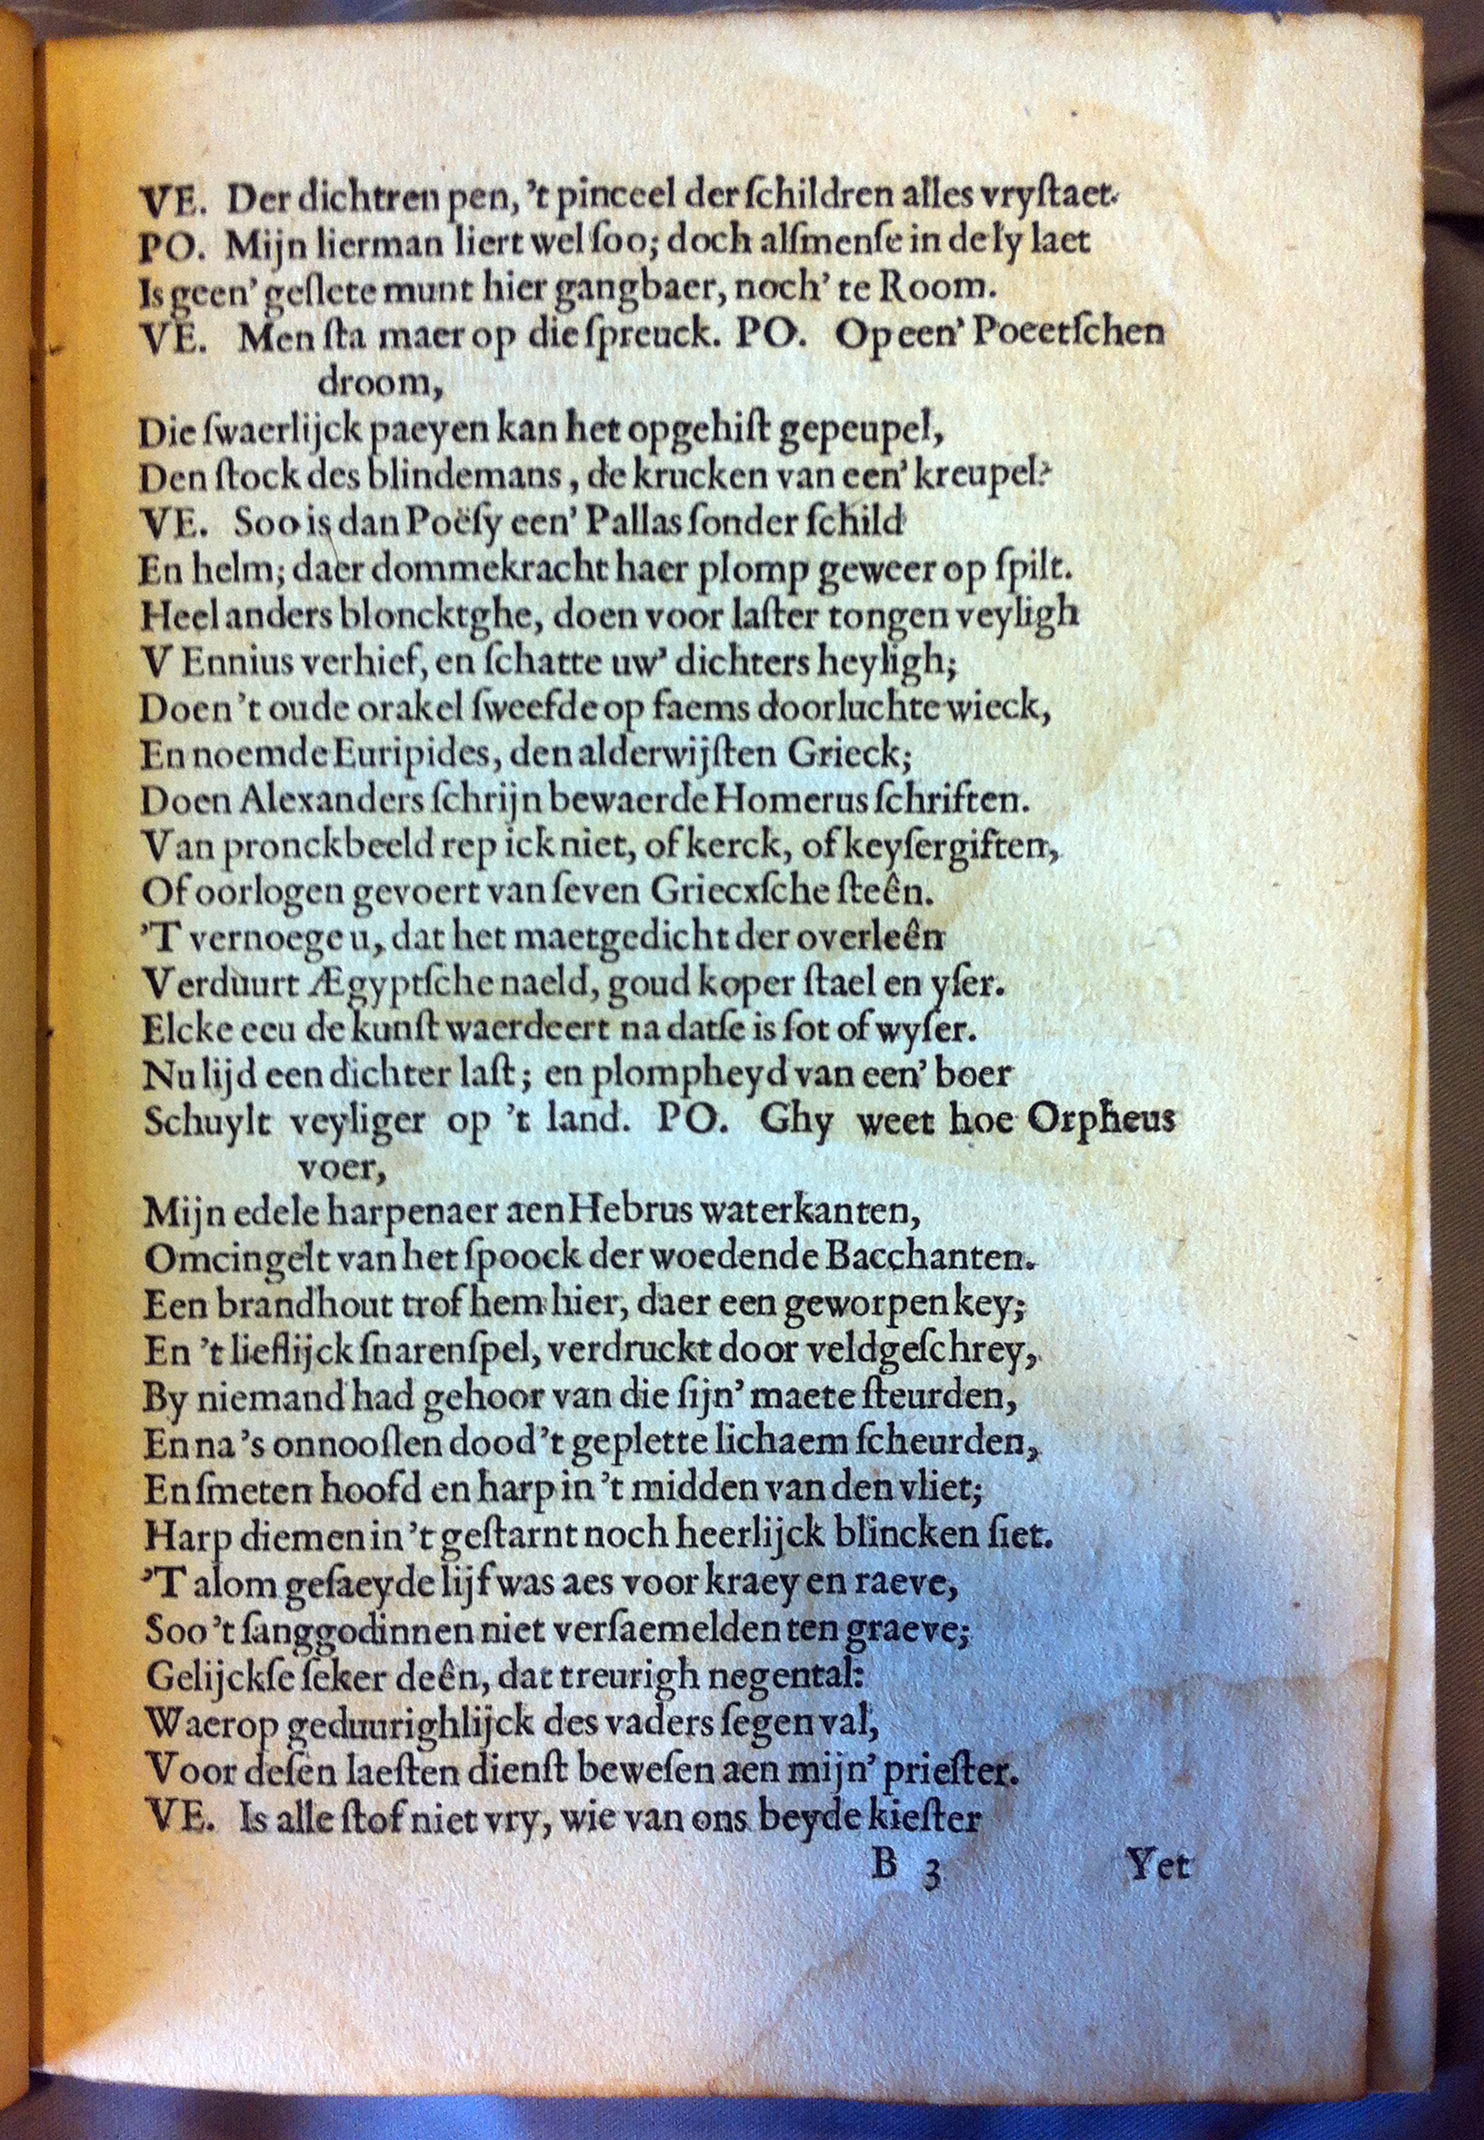 VE. Der dichtren pen, ’t pinceel der ſchildren alles vryſtaet.
PO. Mijn lierman liert wel ſoo; doch alſmenſe in de ly laet
Is geen’ geſlete munt hier gangbaer, noch’ te Room.
VE. Men ſta maer op die ſpreuck. PO. Op een’ Poeetſchen
droom,
Die ſwaerlijck paeyen kan het opgehiſt gepeupel,
Den ſtock des blindemans, de krucken van een’ kreupel?
VE. Soo is dan Poëſy een’ Pallas ſonder ſchild
En helm; daer dommekracht haer plomp geweer op ſpilt.
Heel anders bloncktghe, doen voor laſter tongen veyligh
V Ennius verhief, en ſchatte uw’ dichters heyligh;
Doen ’t oude orakel ſweefde op faems doorluchte wieck,
En noemde Euripides, den alderwijſten Grieck;
Doen Alexanders ſchrijn bewaerde Homerus ſchriften.
Van pronckbeeld rep ick niet, of kerck, of keyſergiften,
Of oorlogen gevoert van ſeven Griecxſche ſteên.
’T vernoege u, dat het maetgedicht der overleên
Verduurt Ægyptſche naeld, goud koper ſtael en yſer.
Elcke eeu de kunſt waerdeert na datſe is ſot of wyſer.
Nu lijd een dichter laſt; en plompheyd van een’ boer
Schuylt veyliger op ’t land. PO. Ghy weet hoe Orpheus
voer,
Mijn edele harpenaer aen Hebrus waterkanten,
Omcingelt van het ſpoock der woedende Bacchanten.
Een brandhout trof hem hier, daer een geworpen key;
En ’t lieflijck ſnarenſpel, verdruckt door veldgeſchrey,
By niemand had gehoor van die ſijn’ maete ſteurden,
En na ’s onnooſlen dood ’t geplette lichaem ſcheurden,
En ſmeten hoofd en harp in ’t midden van den vliet;
Harp diemen in ’t geſtarnt noch heerlijck blincken ſiet.
’T alom geſaeyde lijf was aes voor kraey en raeve,
Soo ’t ſanggodinnen niet verſaemelden ten graeve;
Gelijckſe ſeker deên, dat treurigh negental:
Waerop geduurighlijck des vaders ſegen val,
Voor deſen laeſten dienſt beweſen aen mijn’ prieſter.
VE. Is alle ſtof niet vry, wie van ons beyde kieſter
B 3 Yet